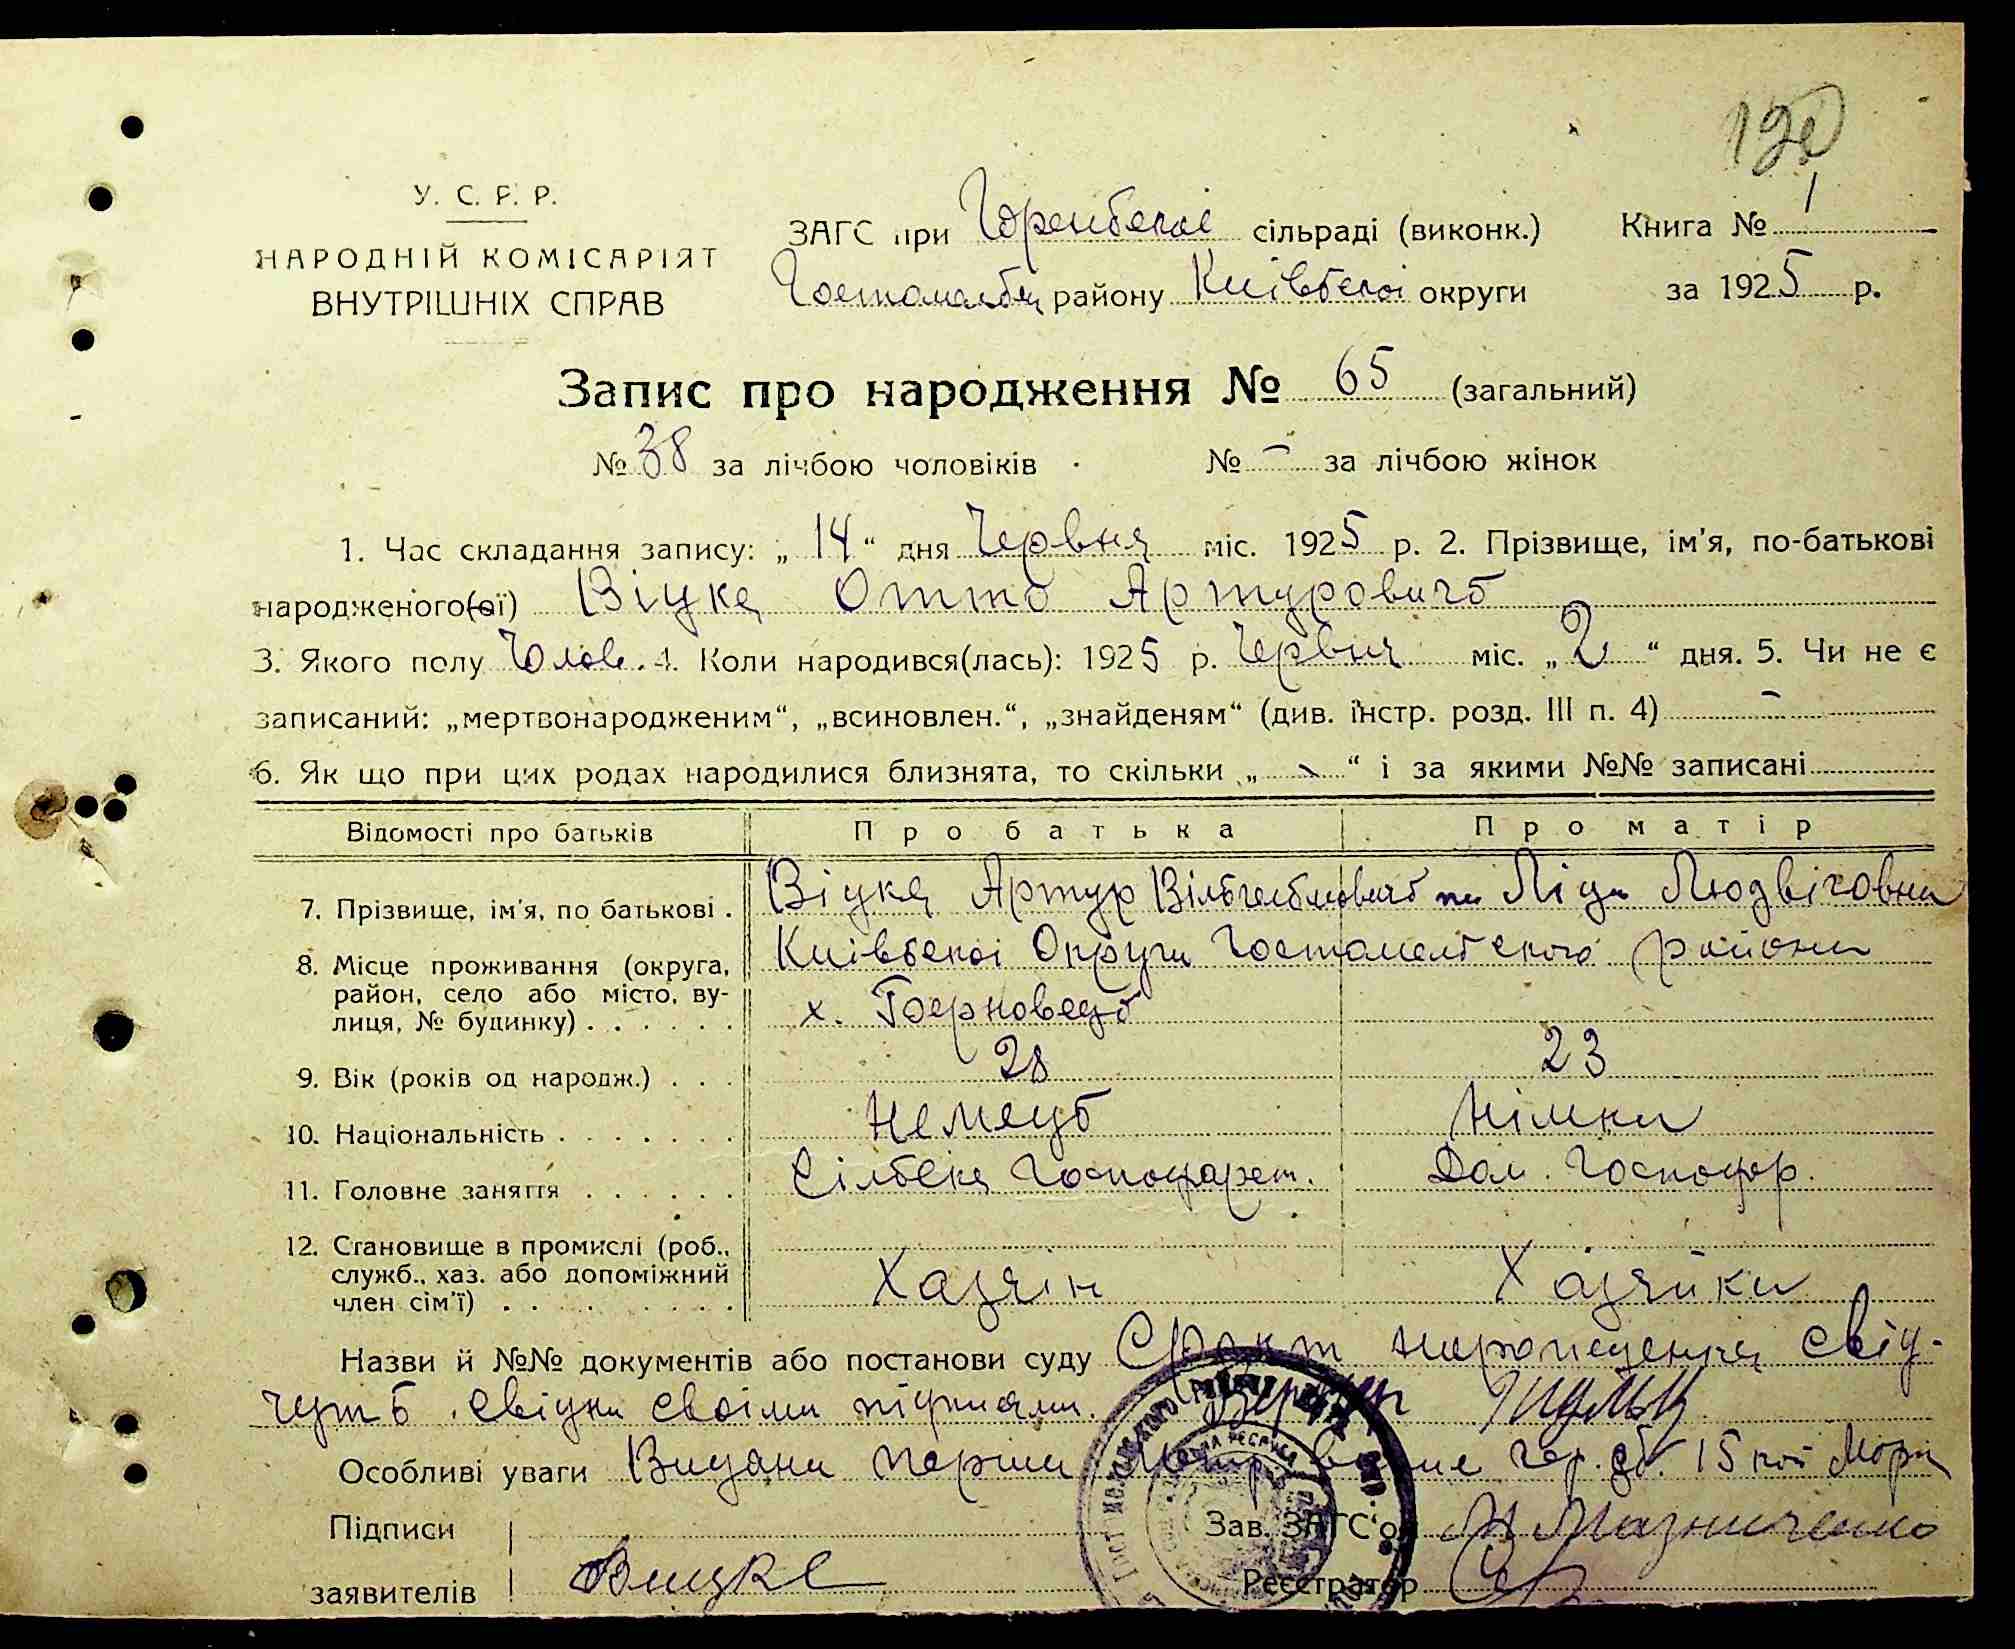 120
У. С. Р. Р.
НАРОДНІЙ КОМІСАРІЯТ
ВНУТРІШНІХ СПРАВ
ЗАГС при Горенській сільраді (виконк.) Книга № 1
району Київської округи за 1925 р.
Запис про народження № 65 (загальний)
№ 38 за лічбою чоловіків № - за лічбою жінок
1. Час складання запису: „ 14 “ дня Червня міс. 1925 р. 2. Прізвище, ім'я, по-батькові
народженого(ої) Віцке Отто Артуровичь
3. Якого полу Чолов. 4. Коли народився(лась): 1925 р. Червня міс. „ 2 “ дня. 5. Чи не є
записаний: „мертвонародженим“, „всиновлен.“, „знайденям“ (див. інстр. розд. III п. 4) -
6. Як що при цих родах народилися близнята, то скільки „ - “ і за якими №№ записані
Відомості про батьків Про батька Про матір
7. Прізвище, ім'я, по батькові . Віцке Артур Вільгельмовичь та Ліда Людвіговна
8. Місце проживання (округа, район, село або місто, вулиця, № будинку) . . . . . . Київської Округи Гостомельского района
х.
9. Вік (років од народж.) . . . 28 23
10. Національність . . . . . . . Немець Німка
11. Головне заняття . . . . . . Сільске Господарст. Дом. Господар.
12. Становище в промислі (роб., служб., хаз. або допоміжний член сім'ї) . . . . . . . . . Хазяін Хазяйка
Назви й №№ документів або постанови суду Факт народження свід-
чуть свідки своіми підписами.
Особливі уваги Видана перша
Підписи
заявителів Вицке
Зав. ЗАГС'ом Мазниченко
Реєстратор